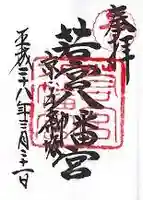 奉拝
若宮八幡宮
京都五条坂
平成二十八年三月二十一日